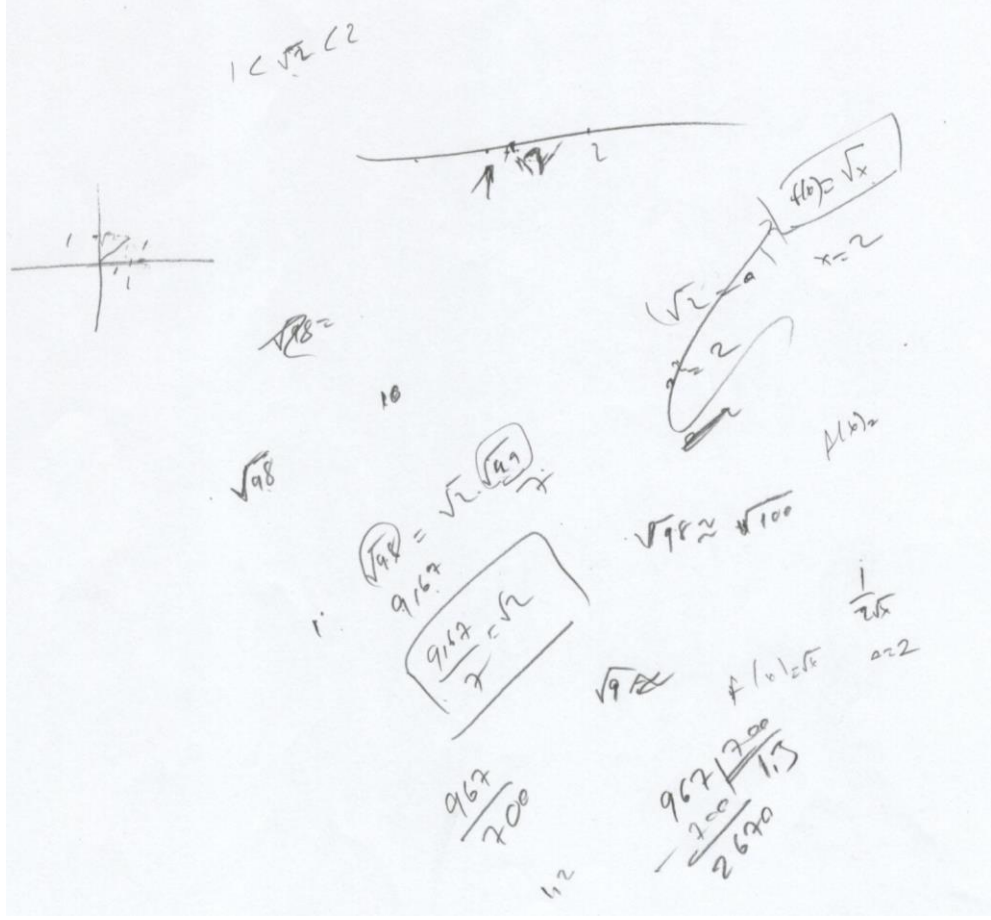 1 < √2 < 2
1 √2 2
f(x) = √x
x = 2
1 1
1
√2
= 2
√98 =
10
√98
f(x) =
√98 = √2 . √49
7
9,67
√98 ≈ √100
9,67 / 7 = √2
1 / 2√x
√9
f(x) = √x
a = 2
967 / 700
967 | 700
- 700 1,3
2670
1,2